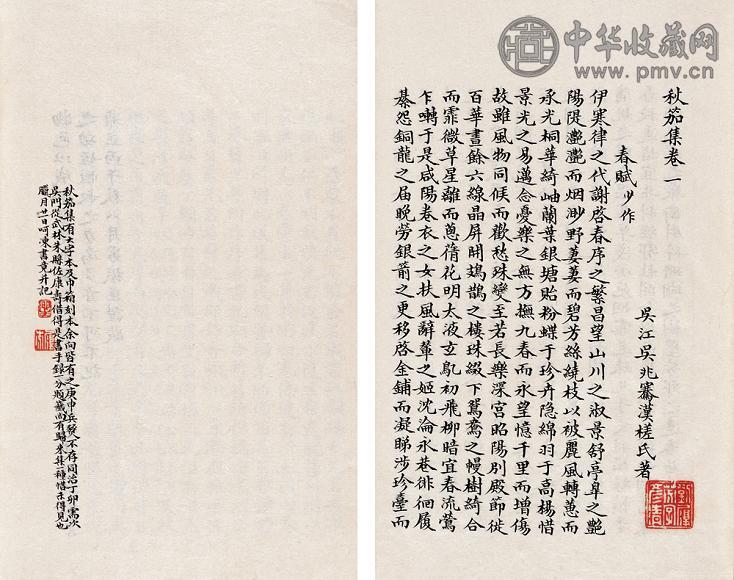 中华收藏网
www.pmv.cn
秋笳集卷一
吳江吳兆騫漢槎氏著
春賦少作
伊寒律之代謝啓春序之繁昌望山川之淑景舒亭皐之艷
陽隄灧灧而烟渺野萋萋而碧芳絲繞枝以被麗風轉蕙而
承光桐華綺岫蘭葉銀塘貽粉蝶于珍卉隐綿羽于高楊惜
景光之易邁念憂樂之無方撫九春而永望憶千里而增傷
故雖風物同候而歡愁殊變至若長樂深宮昭陽別殿節徙
百華晝餘六線晶屏開鳷鵲之樓珠綴下鴛鴦之幔樹綺合
而霏微草星離而蔥蒨花明太液玄鳦初飛柳暗宜春流鶯
乍囀于是咸陽卷衣之女扶風辭輦之姬沈淪永巷徘徊履
綦怨銅龍之届晚勞銀箭之更移啓金鋪而凝睇涉珍臺而
秋笳集有大字本及巾箱刻本余向皆有之庚申兵燹不存同治丁卯需次
吳門從武林朱縣佐康壽借得是書手錄一分藏尚有歸來集一種惜未得見也
臘月廿日呵凍書竟并記